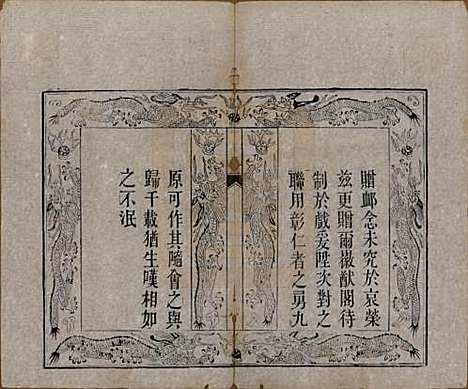 贈卹念未究於哀榮
玆更贈爾徽猷閣待
制於戲爰陞次對之
聯用彰仁者之勇九
原可作其隨會之與
歸千載猶生嘆相如
之不泯